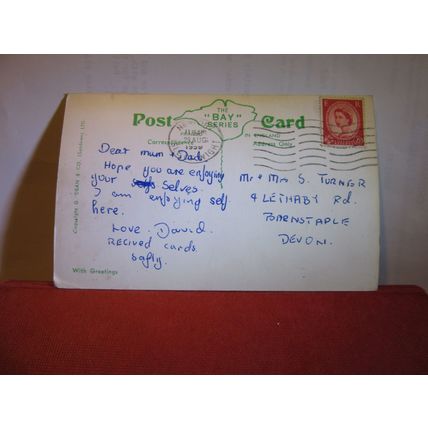 Post Card
THE
"BAY"
SERIES
Correspondence
IN ENGLAND
Address Only
Dear mum + Dad.
Hope you are enjoying
your selves.
I am enjoying self
here.
Love. David.
recived cards
safly.
Mr + Mrs S. TURNER
4 LETHABY Rd.
BARNSTAPLE
DEVON.
With Greetings